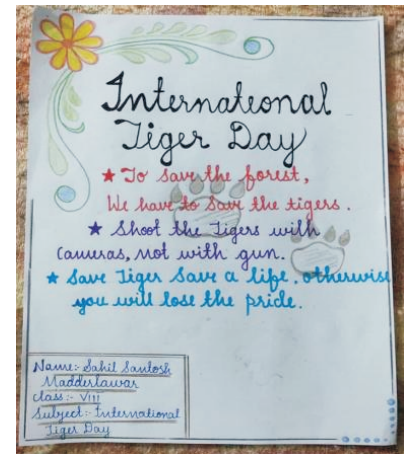 International
Tiger Day
★ To save the forest,
We have to Save the tigers.
★ Shoot the Tigers with
Cameras, not with gun.
★ Save Tiger Save a life, otherwise
you will lose the pride.
Name:- Sahil Santosh
Madderlawar
Class:- VIII
Subject:- International
Tiger Day